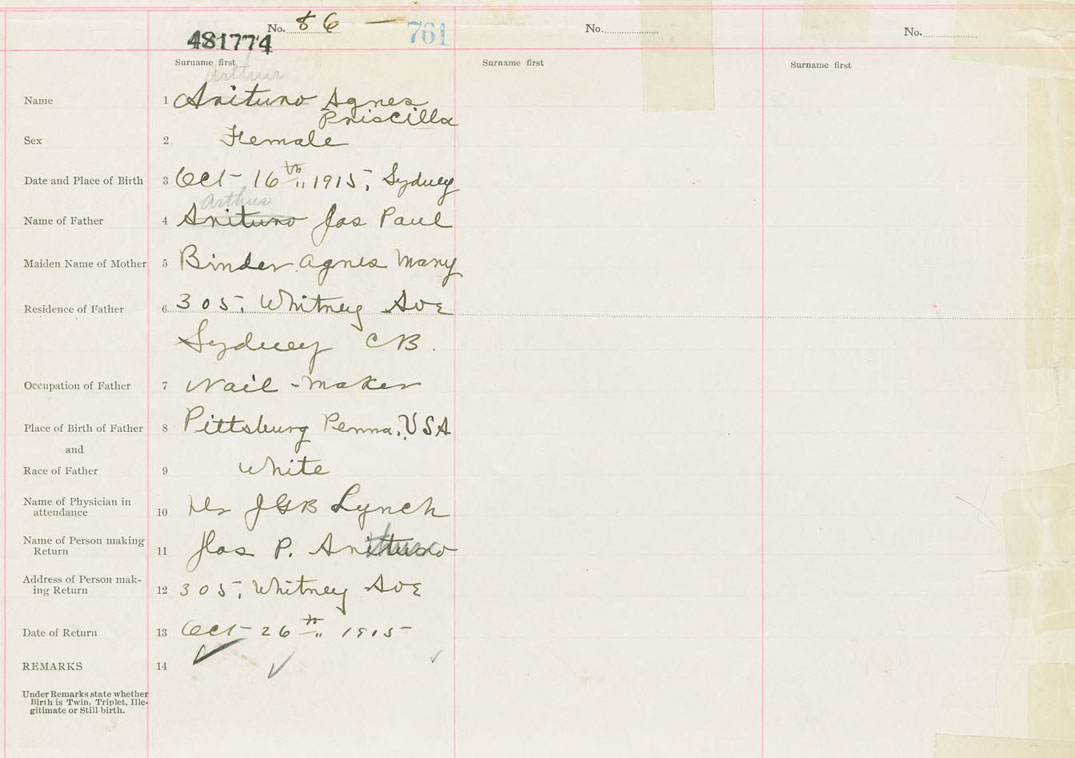 No. 86 —
761
No.
No.
481774
Surname first
Surname first
Surname first
Arthur
Name 1 Anituno Agnes
Priscilla
Sex 2 Female
Date and Place of Birth 3 Oct 16th 1915, Sydney
Arthur
Name of Father 4 Anituno Jas Paul
Maiden Name of Mother 5 Binder Agnes Mary
Residence of Father 6 305, Whitney Ave
Sydney CB.
Occupation of Father 7 Nail-maker
Place of Birth of Father 8 Pittsburg Penna, USA
and
Race of Father 9 White
Name of Physician in
attendance 10 Dr JGB Lynch
Name of Person making
Return 11 Jas P.
Address of Person mak-
ing Return 12 305, Whitney Ave
Date of Return 13 Oct 26th 1915
REMARKS 14
Under Remarks state whether
Birth is Twin, Triplet, Ille-
gitimate or Still birth.